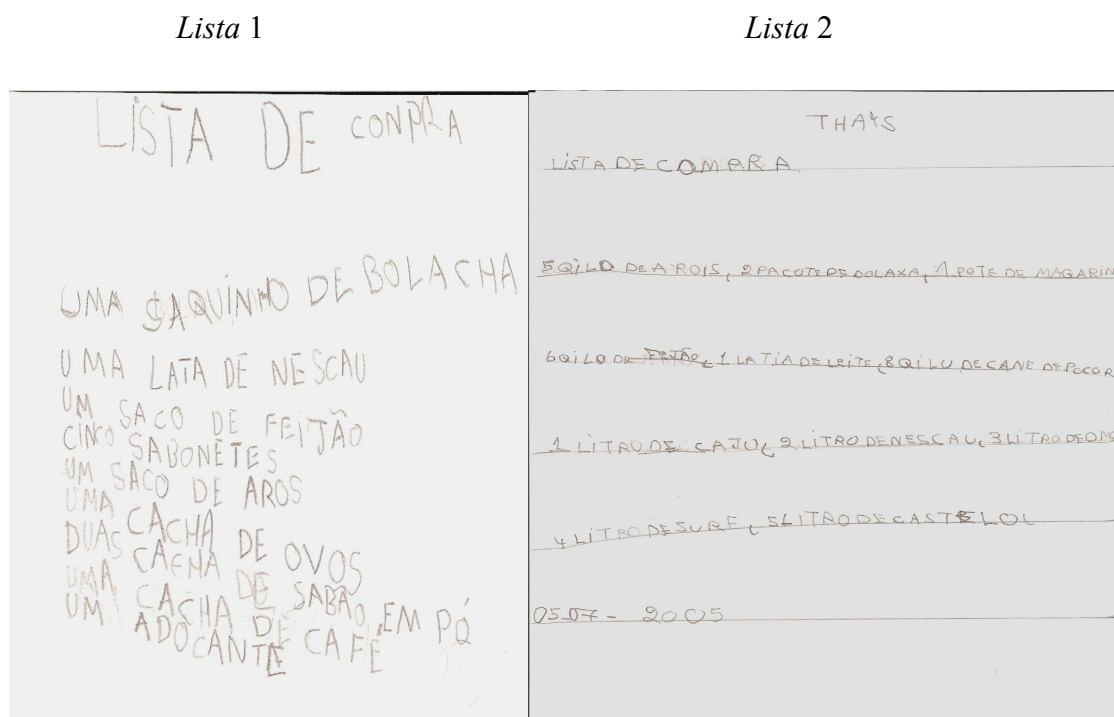 Lista 1
LISTA DE CONPRA
UMA SAQUINHO DE BOLACHA
UMA LATA DE NESCAU
UM SACO DE FEITJÃO
CINCO SABONETES
UM SACO DE AROS
UMA CACHA DE OVOS
DUAS CACHA DE SABÃO EM PÓ
UMA CACHA DE CAFÉ
UM ADOCANTE
Lista 2
THAYS
LISTA DE
5 QILO DE AROIS, 2 PACOTE DE BOLAXA, 1 POTE DE MAGARIN
6 QILO DE FEJÃO, 1 LATIA DE LEITE, 8 QILU DE CANE DE POCO
1 LITRO DE CAJU, 2 LITRO DE NESCAU, 3 LITRO DE OM
4 LITRO DE SURF, 5 LITRO DE CASTELOL
05-07- 2005